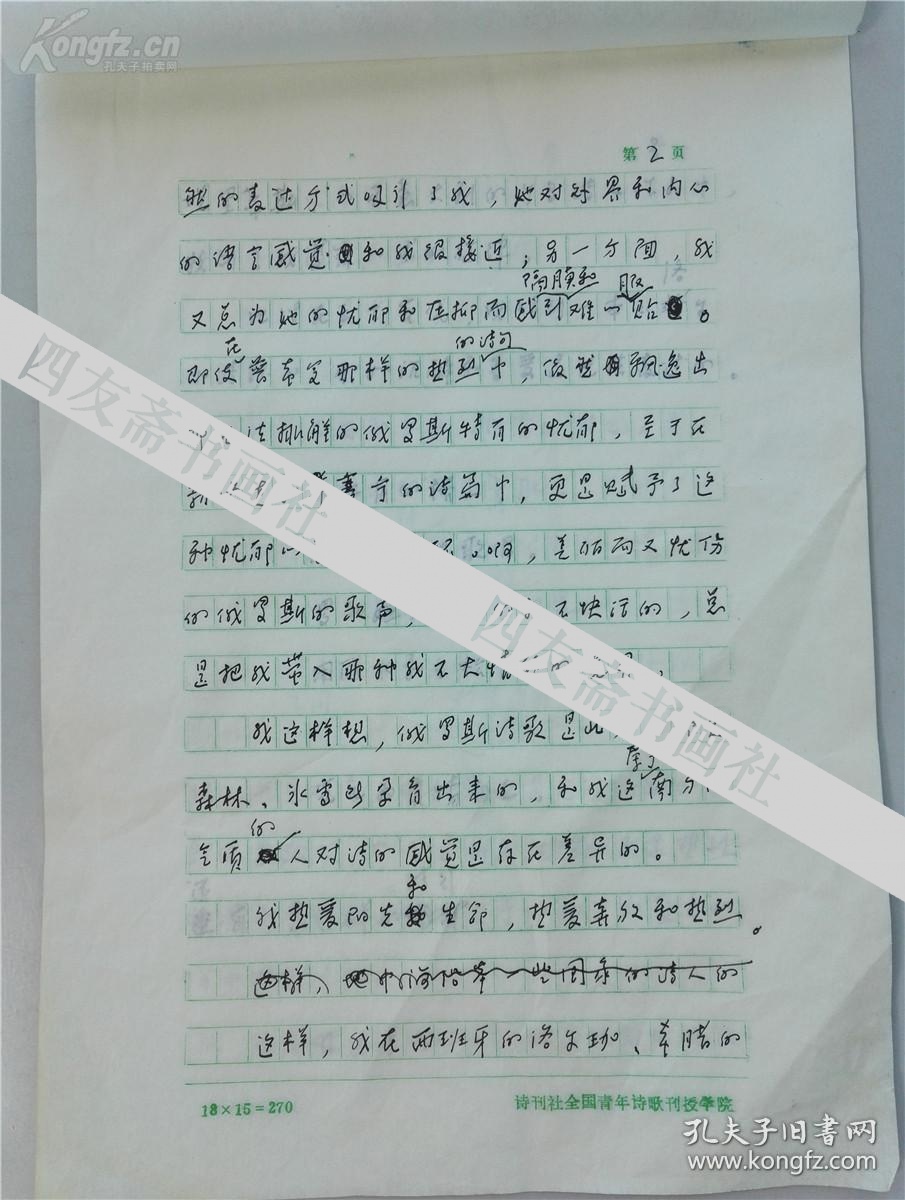 Kongfz.cn
孔夫子拍卖网
第2页
然的表达方式吸引了我，她对外界和内心
的语言感觉和我很接近；另一方面，我
隔膜和 服
又总为她的忧郁和压抑而感到难以贴。
在 的诗句
即使普希金那样的热烈中，依然飘逸出
排解的俄罗斯特有的忧郁，至于在
的诗篇中，更是赋予了这
种忧郁以 啊，美丽而又忧伤
的俄罗斯的歌声， 不快活的，总
是把我带入那种我不大情
我这样想，俄罗斯诗歌是此
森林、冰雪所孕育出来的，和我这南方
的
气质人对诗的感觉是存在差异的。
和
我热爱阳光生命，热爱奔放和热烈。
这样，一些国家的诗人的
这样，我在西班牙的洛尔珈、希腊的
18×15=270
诗刊社全国青年诗歌刊授学院
四友斋书画社
四友斋书画社
孔夫子旧书网
www.kongfz.com